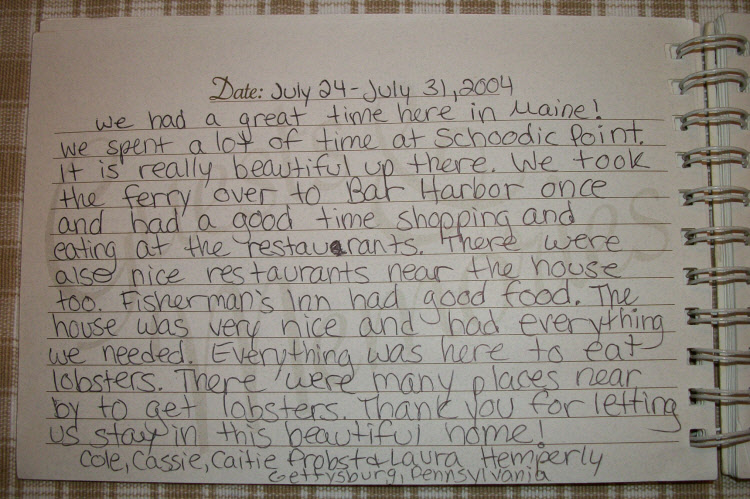 Date: July 24-July 31, 2004
We had a great time here in Maine!
We spent a lot of time at Schoodic Point.
It is really beautiful up there. We took
the ferry over to Bar Harbor once
and had a good time shopping and
eating at the restaurants. There were
also nice restaurants near the house
too. Fisherman's Inn had good food. The
house was very nice and had everything
we needed. Everything was here to eat
lobsters. There were many places near
by to get lobsters. Thank you for letting
us stay in this beautiful home!
Cole, Cassie, Caitie Probst & Laura Hemperly
Gettysburg, Pennsylvania